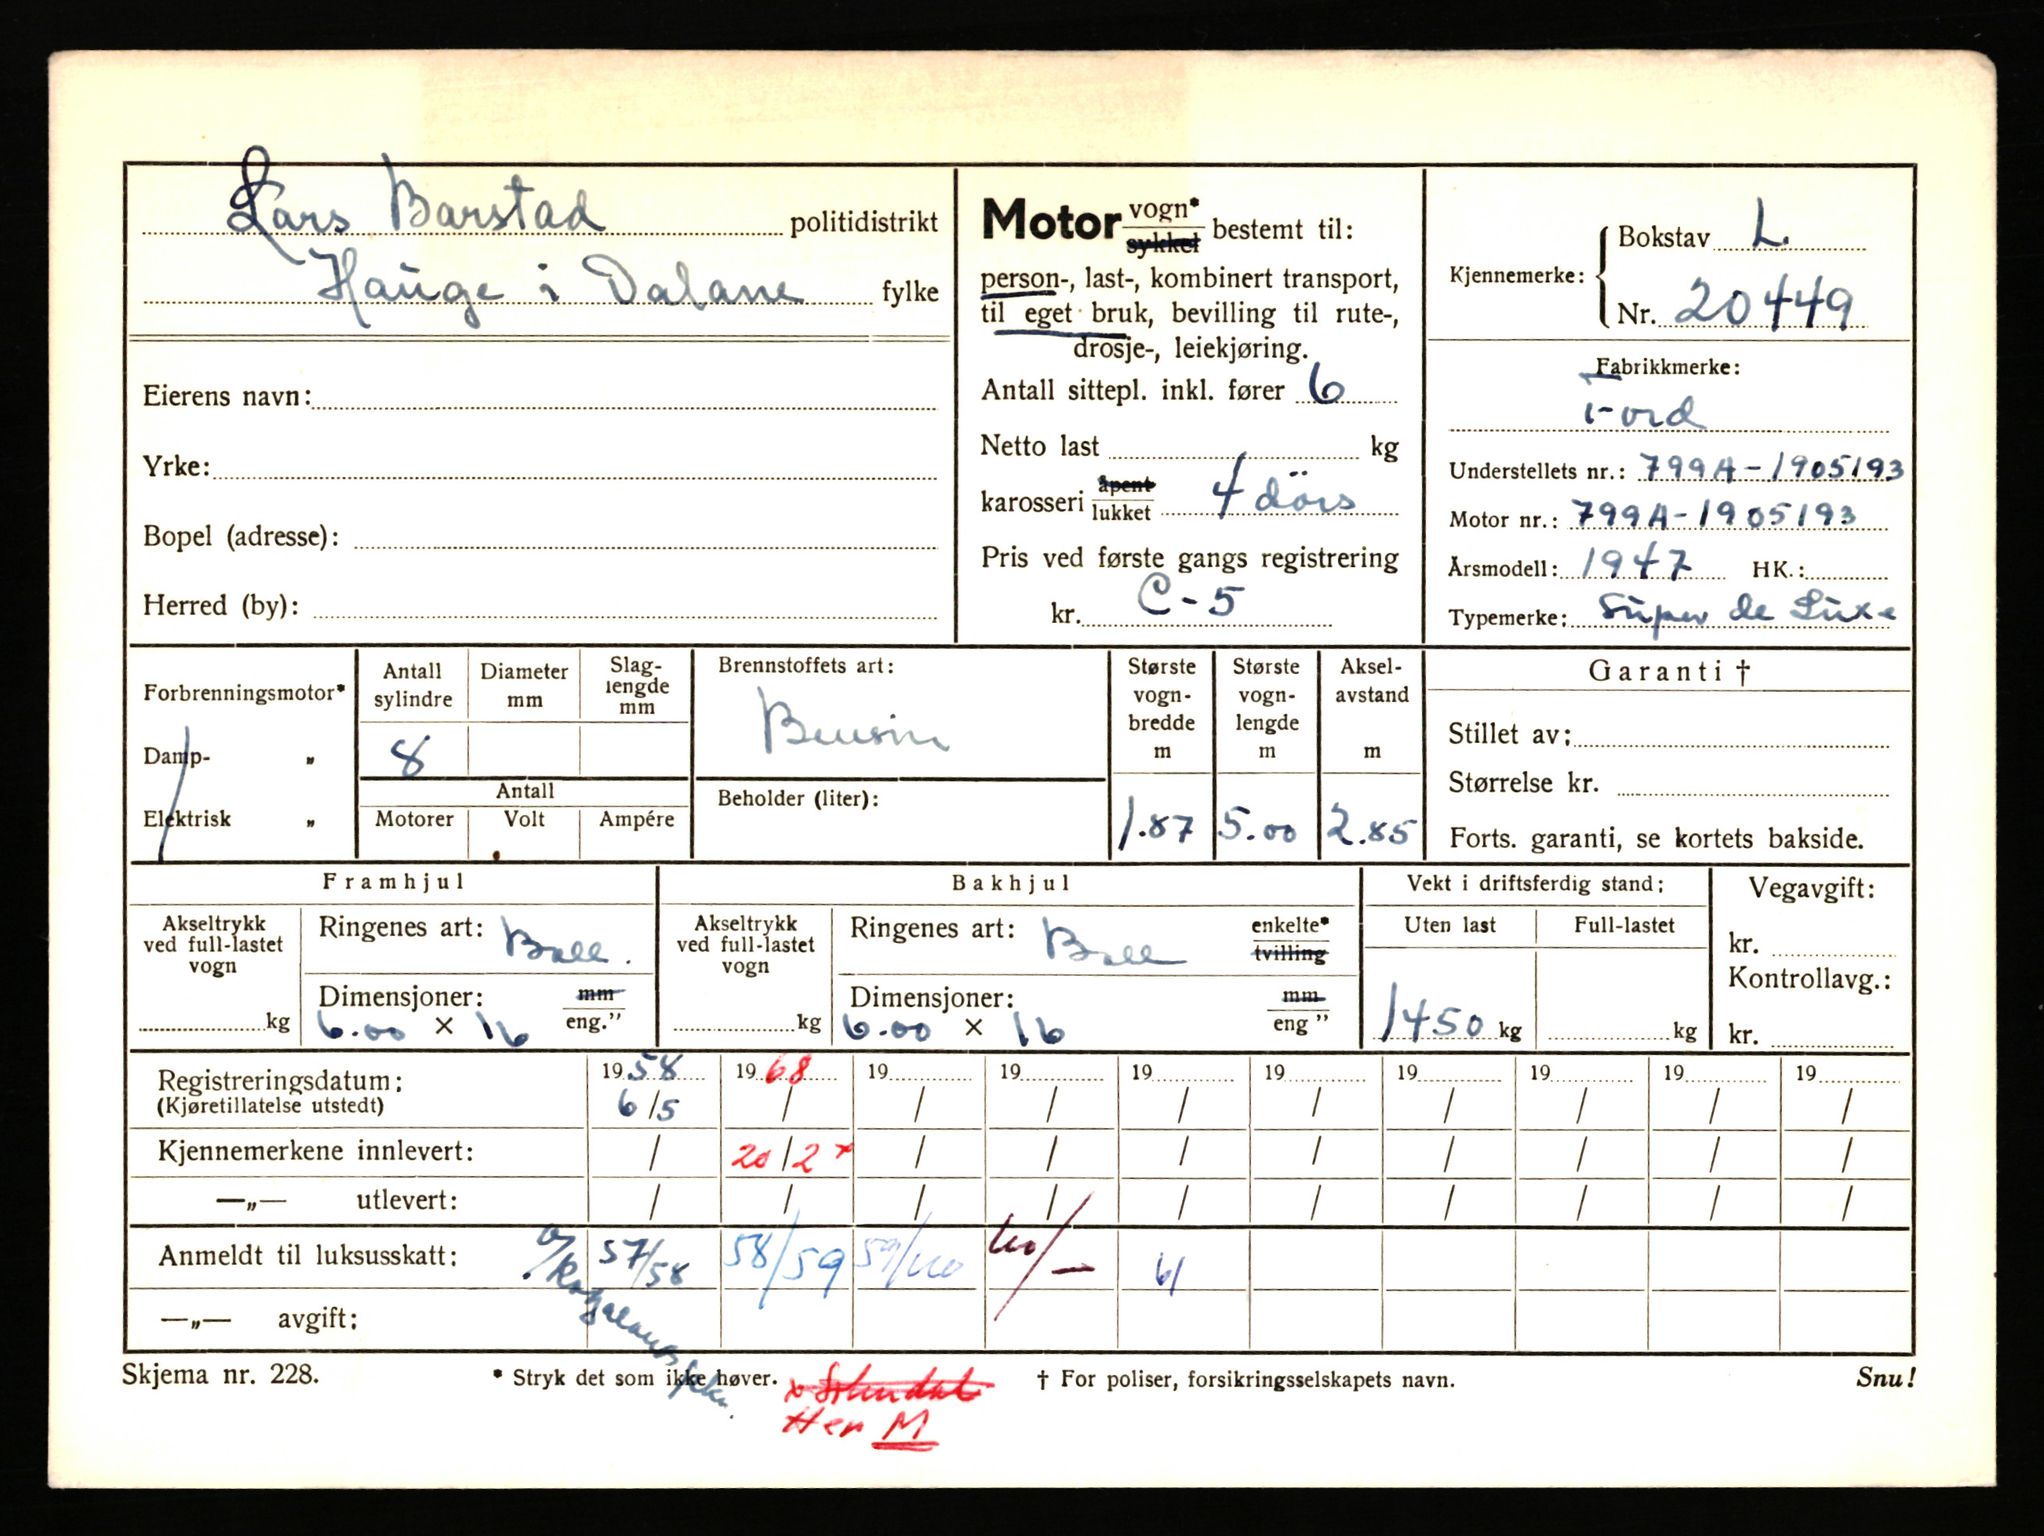 Lars Barstad politidistrikt
Hauge i Dalane fylke
Eierens navn:
Yrke:
Bopel (adresse):
Herred (by):
Motor vogn* sykkel bestemt til:
person-, last-, kombinert transport,
til eget bruk, bevilling til rute-,
drosje-, leiekjøring.
Antall sittepl. inkl. fører 6
Netto last kg
karosseri åpent lukket 4 dörs
Pris ved første gangs registrering
kr. C-5
Kjennemerke: Bokstav L.
Nr. 20449
Fabrikkmerke:
Ford
Understellets nr.: 799A-1905193
Motor nr.: 799A-1905193
Årsmodell: 1947 HK.:
Typemerke: Super de Luxe
Forbrenningsmotor*
Damp- „
Elektrisk „
Antall sylindre Diameter mm Slag-lengde mm
8
Antall
Motorer Volt Ampére
Brennstoffets art:
Bensin
Beholder (liter):
Største vogn-bredde m Største vogn-lengde m Aksel-avstand m
1.87 5.00 2.85
Garanti †
Stillet av:
Størrelse kr.
Forts. garanti, se kortets bakside.
Framhjul
Akseltrykk ved full-lastet vogn
kg
Ringenes art: Ball.
Dimensjoner: mm
6.00 × 16 eng.”
Bakhjul
Akseltrykk ved full-lastet vogn
kg
Ringenes art: Ball enkelte* tvilling
Dimensjoner: mm
6.00 × 16 eng ”
Vekt i driftsferdig stand:
Uten last Full-lastet
1450 kg kg
Vegavgift:
kr.
Kontrollavg.:
kr.
Registreringsdatum: 1958 1968 19 19 19 19 19 19 19 19
(Kjøretillatelse utstedt) 6/5 / / / / / / / / /
Kjennemerkene innlevert: / 20/2 x / / / / / / / /
—„— utlevert: / / / / / / / / / /
Anmeldt til luksusskatt: 57/58 58/59 59/60 60/— 61
—„— avgift:
Skjema nr. 228. * Stryk det som ikke høver. † For poliser, forsikringsselskapets navn. Snu!
Her M